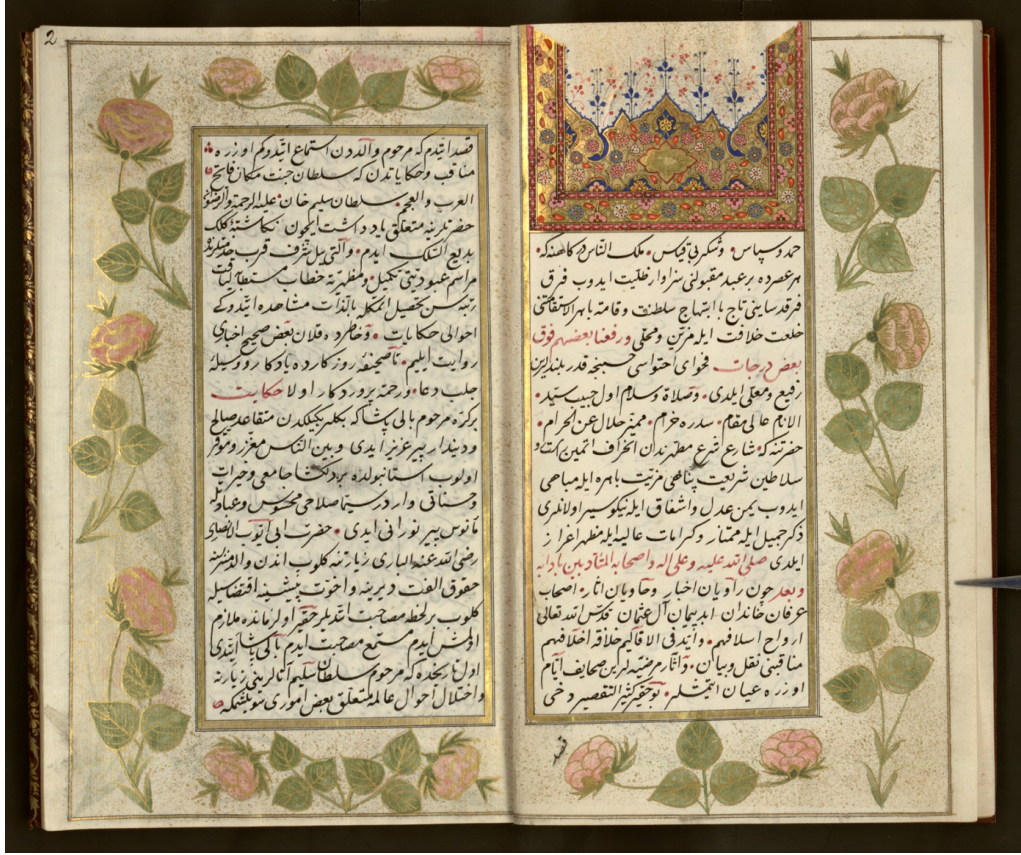 حمد وسپاس وشكر بى قياس ملك الناس دركاهنه كه
هر عصرده بر عبد مقبولنى سزاوار ظليت ايدوب فرق
فرقد ساينى تاج با ابتهاج سلطنت وقامة باهر الاستقامتنى
خلعت خلافت ايله مزين ومحلى ورفعنا بعضهم فوق
بعض درجات فحواى احتواسى حسبنجه قدر بلندلرين
رفيع ومعلى ايلدى وصلاة وسلام اول حبيب سيد
الانام عالى مقام سدره خرام مميز حلال عن الحرام
حضرتنه كه شارع شرع مطهرندن انحراف اتمين
سلاطين شريعت پناهى مزيت باهره ايله مباهى
ايدوب يمن عدل واشفاق ايله نيكوسير اولانلرى
ذكر جميل ايله ممتاز وكرامات عاليه ايله مظهر اعزاز
ايلدى صلى الله عليه وعلى اله واصحابه المتأدبين بآدابه
وبعد چون راويان اخبار وحاويان اثار اصحاب
عرفان خاندان ابد پيمان آل عثمان قدس الله تعالى
ارواح اسلافهم وأيد فى الاقاليم خلافة اخلافهم
مناقبنى نقل وبيان وآثار مرضيه لرين صحايف ايام
اوزره عيان اتمشلر بو حقير كثير التقصير دخى
قصد
2
قصد ايتدم كه مرحوم والددن استماع ايتدوكم اوزره
مناقب وحكاياتدن كه سلطان جنت مكان فاتح
العرب والعجم سلطان سليم خان عليه الرحمة والرضوان
حضرتلرينه متعلق ياد داشت ايچون نكاشتۀ كلك
بديع السلك ايدم والتى ييل شرف قرب خدمتلرنده
مراسم عبوديتى تكميل ومظهريۀ خطاب مستطابه لياقت
رتبه سن تحصيل اتمكله بالذات مشاهده ايتدوكى
احوالى حكايات وخاطرده قلان بعض صحيح اخبارى
روايت ايليم تا صحيفۀ روزكارده يادكار و وسيلۀ
جلب دعا ورحمة پروردكار اولا حكايت
بركره مرحوم بالى پاشا كه بكلربكيلكدن متقاعد صالح
وديندار پير عزيز ايدى وبين الناس معزز وموقر
اولوب استانبولده بر دلكشا جامعى وخيرات
وحسناتى واردر سيما صلاحى محسوس وعباداتله
مأنوس پير نورانى ايدى حضرت ابى ايوب الانصارى
رضى الله عنه البارى زيارتنه كلوب اندن والدمزله
حقوق الفت ديرينه واخوت پيشينه اقتضاسيله
كلوب بر لحظه مصاحبت ايتديلر حقير اولرمانده ملازم
اولمش ايدم مستمع مصاحبت ايدم بالى پاشا ايتدى
اول تاريخده كه مرحوم سلطان سليم آتالرينى زيارته
واختلال احوال عالمه متعلق بعض امورى سويلشمكه